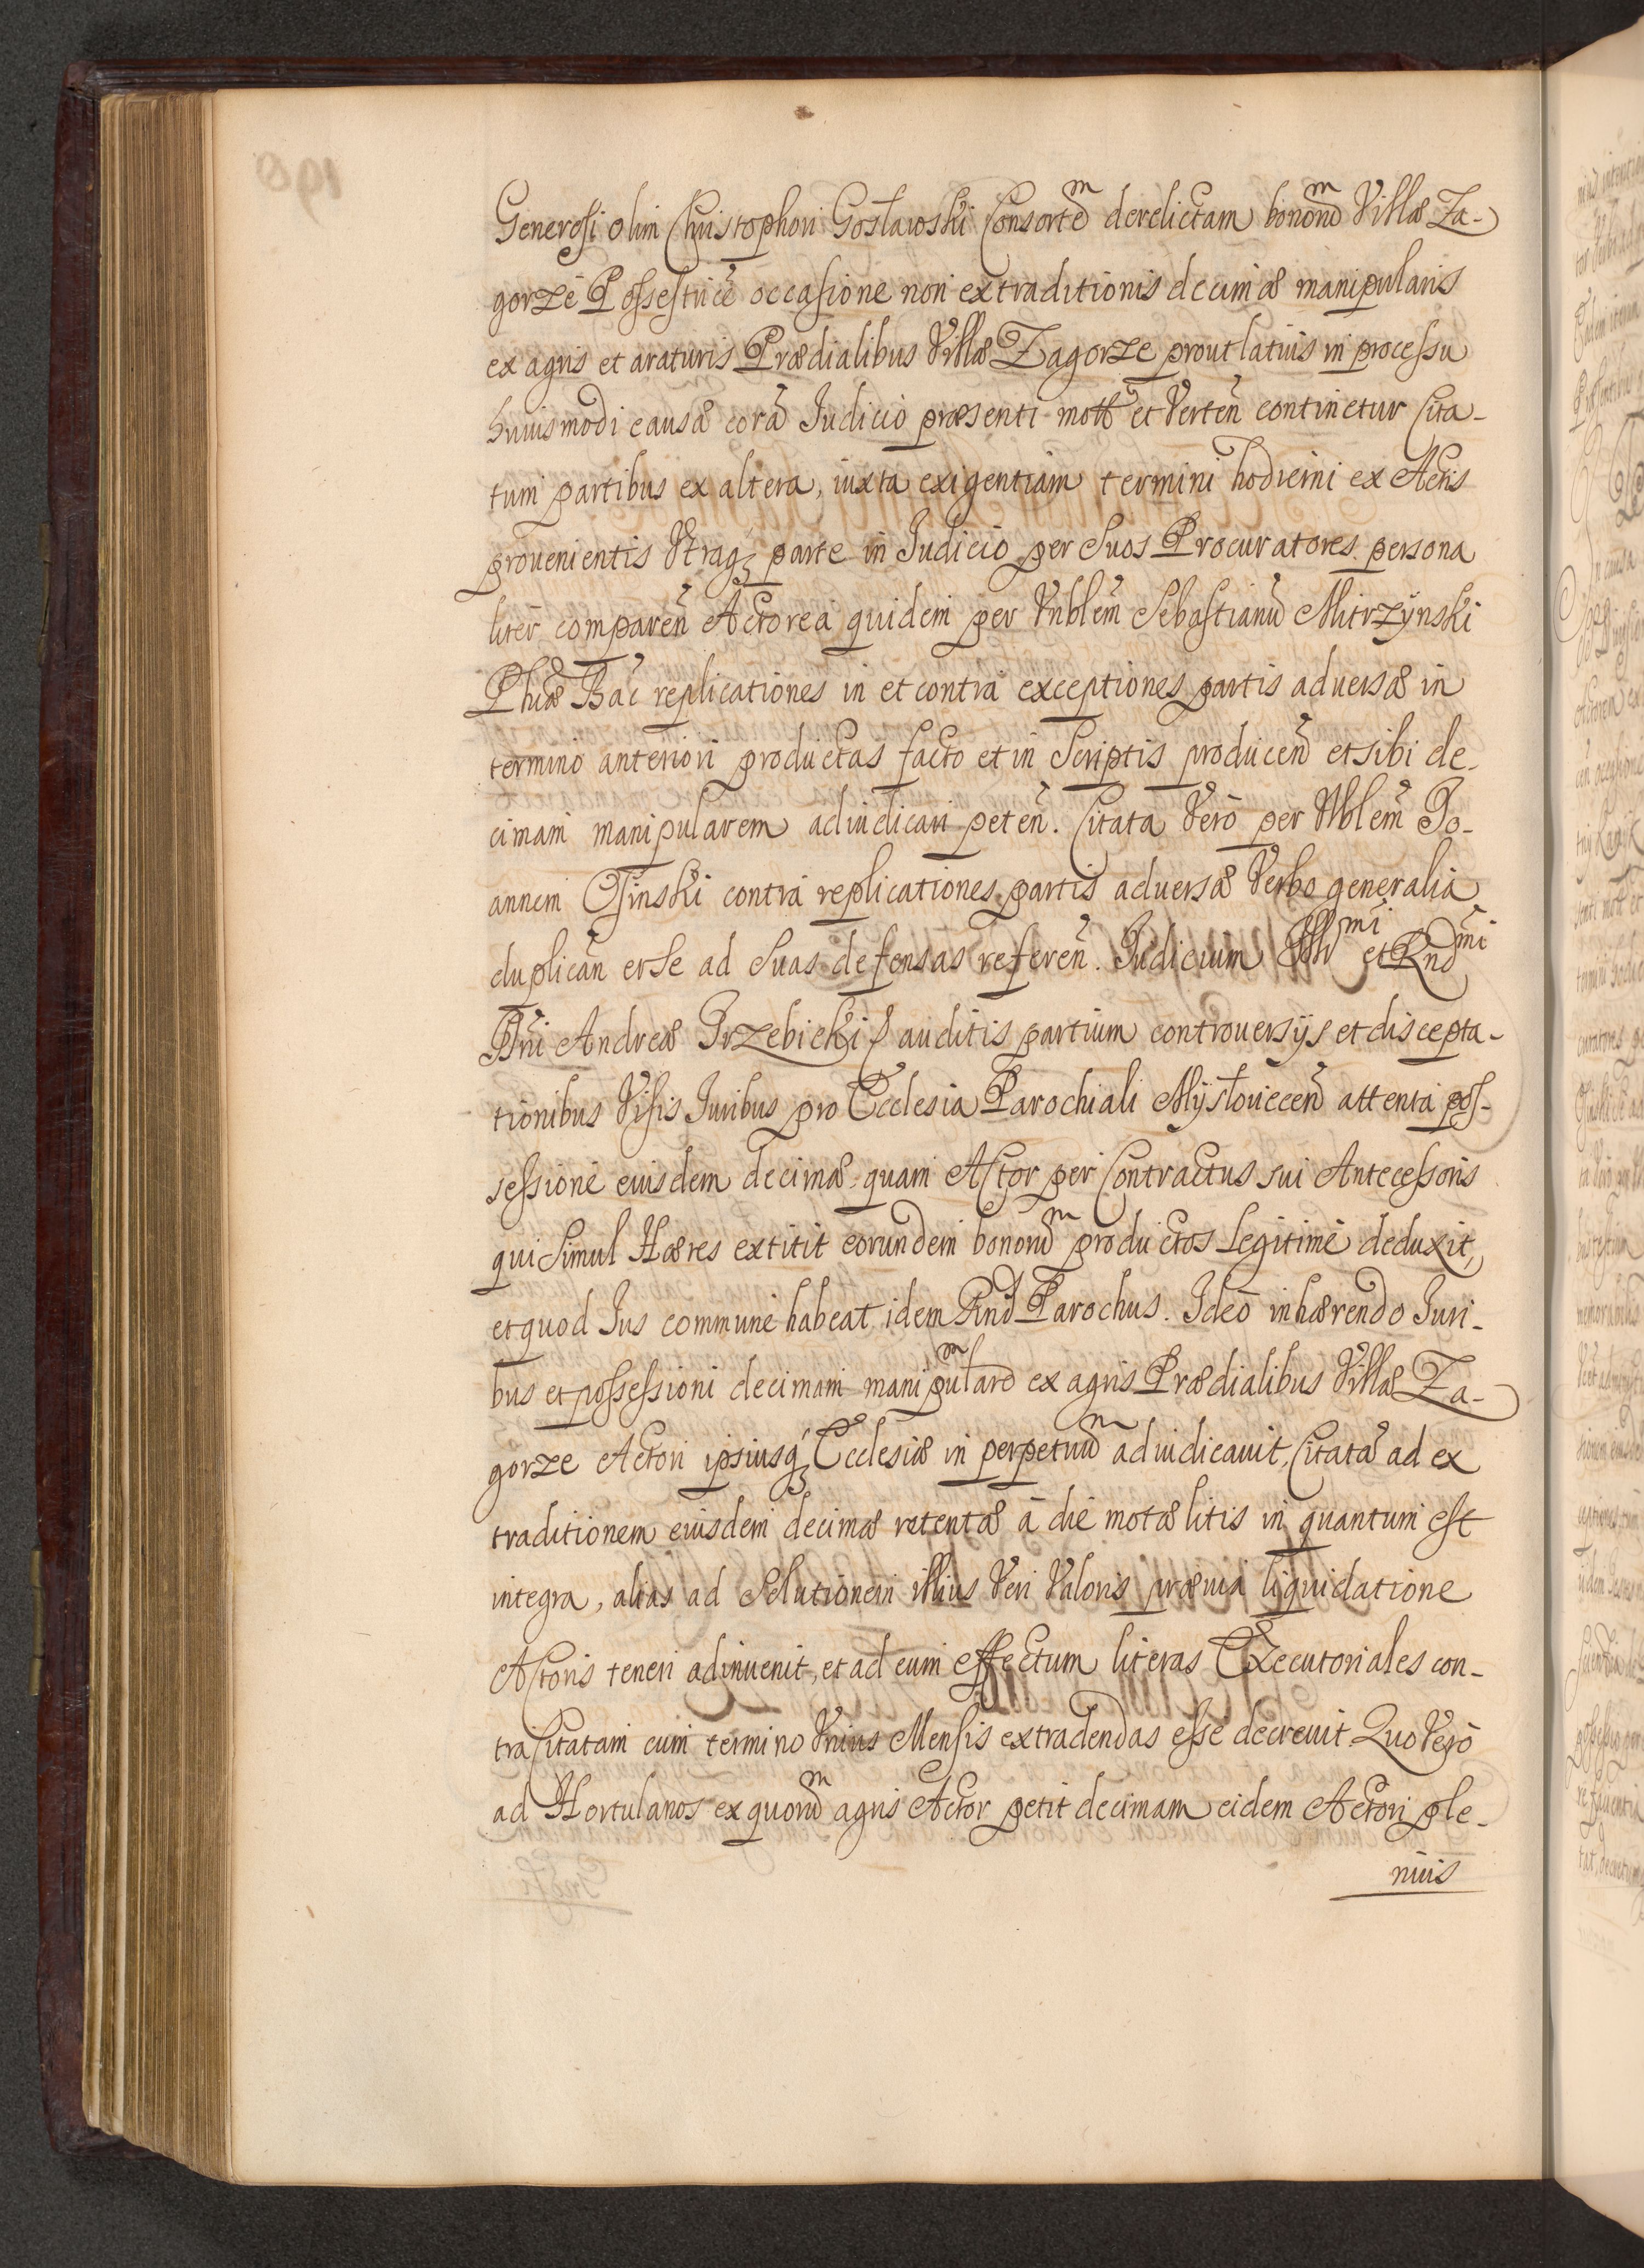 Generosi olim Christophori Gosławski Consortē̃ᵐ derelictam bonorũᵐ Villæ Za-
gorze Possestricẽ occasione non extraditionis decimæ manipularis
ex agris et araturis Prædialibus Villæ Zagorze prout latius in processu
huiusmodi causæ corã Judicio præsenti mott̃ et Vertẽn continetur Cita-
tum partibus ex altera, iuxta exigentiam termini hodierni ex Actis
prouenientis Vtraq₃ parte in Judicio per Suos Procuratores persona
liter̃ comparen̄ Actorea quidem per Vnblẽm Sebastianũ Mitrzÿnski
Phiæ Bac̃ replicationes in et contra exceptiones partis aduersæ in
termino anteriori productas facto et in Scriptis producen̄ et sibi de-
cimam manipularem adiudicari petẽn. Citata Vero per Vblẽm Jo-
annem Osinski contra replicationes partis aduersæ Verbo generalia
duplicãn et se ad Suas defensas referẽn. Judicium Illᵐⁱ et Rndᵐⁱ
Dñi Andreæ Trzebicki auditis partium controuersijs et discepta-
tionibus Visis Juribus pro Ecclesia Parochiali Mysłouecen̄ attenta pos-
sessione eiusdem decimæ, quam Actor per Contractus sui Antecessoris
qui Simul Hæres extitit eorundem bonorũᵐ productos Legitime deduxit,
et quod Jus commune habeat idem Rnd Parochus. Ideo inhærendo Juri-
bus et possessioni decimam manipularẽᵐ ex agris Prædialibus Villæ Za-
gorze Actori ipsiusq₃ Ecclesiæ in perpetuũᵐ adiudicauit, Citatã ad ex
traditionem eiusdem decimæ retentæ à die motæ litis in quantum est
integra, alias ad Solutionem illius Veri Valoris præuia liquidatione
Actoris teneri adinuenit, et ad eum effectum literas Executoriales con-
tra Citatam cum termino Vnius Mensis extradendas esse decreuit. Quo Vero
ad Hortulanos ex quorũᵐ agris Actor petit decimam eidem Actori ple-
nius